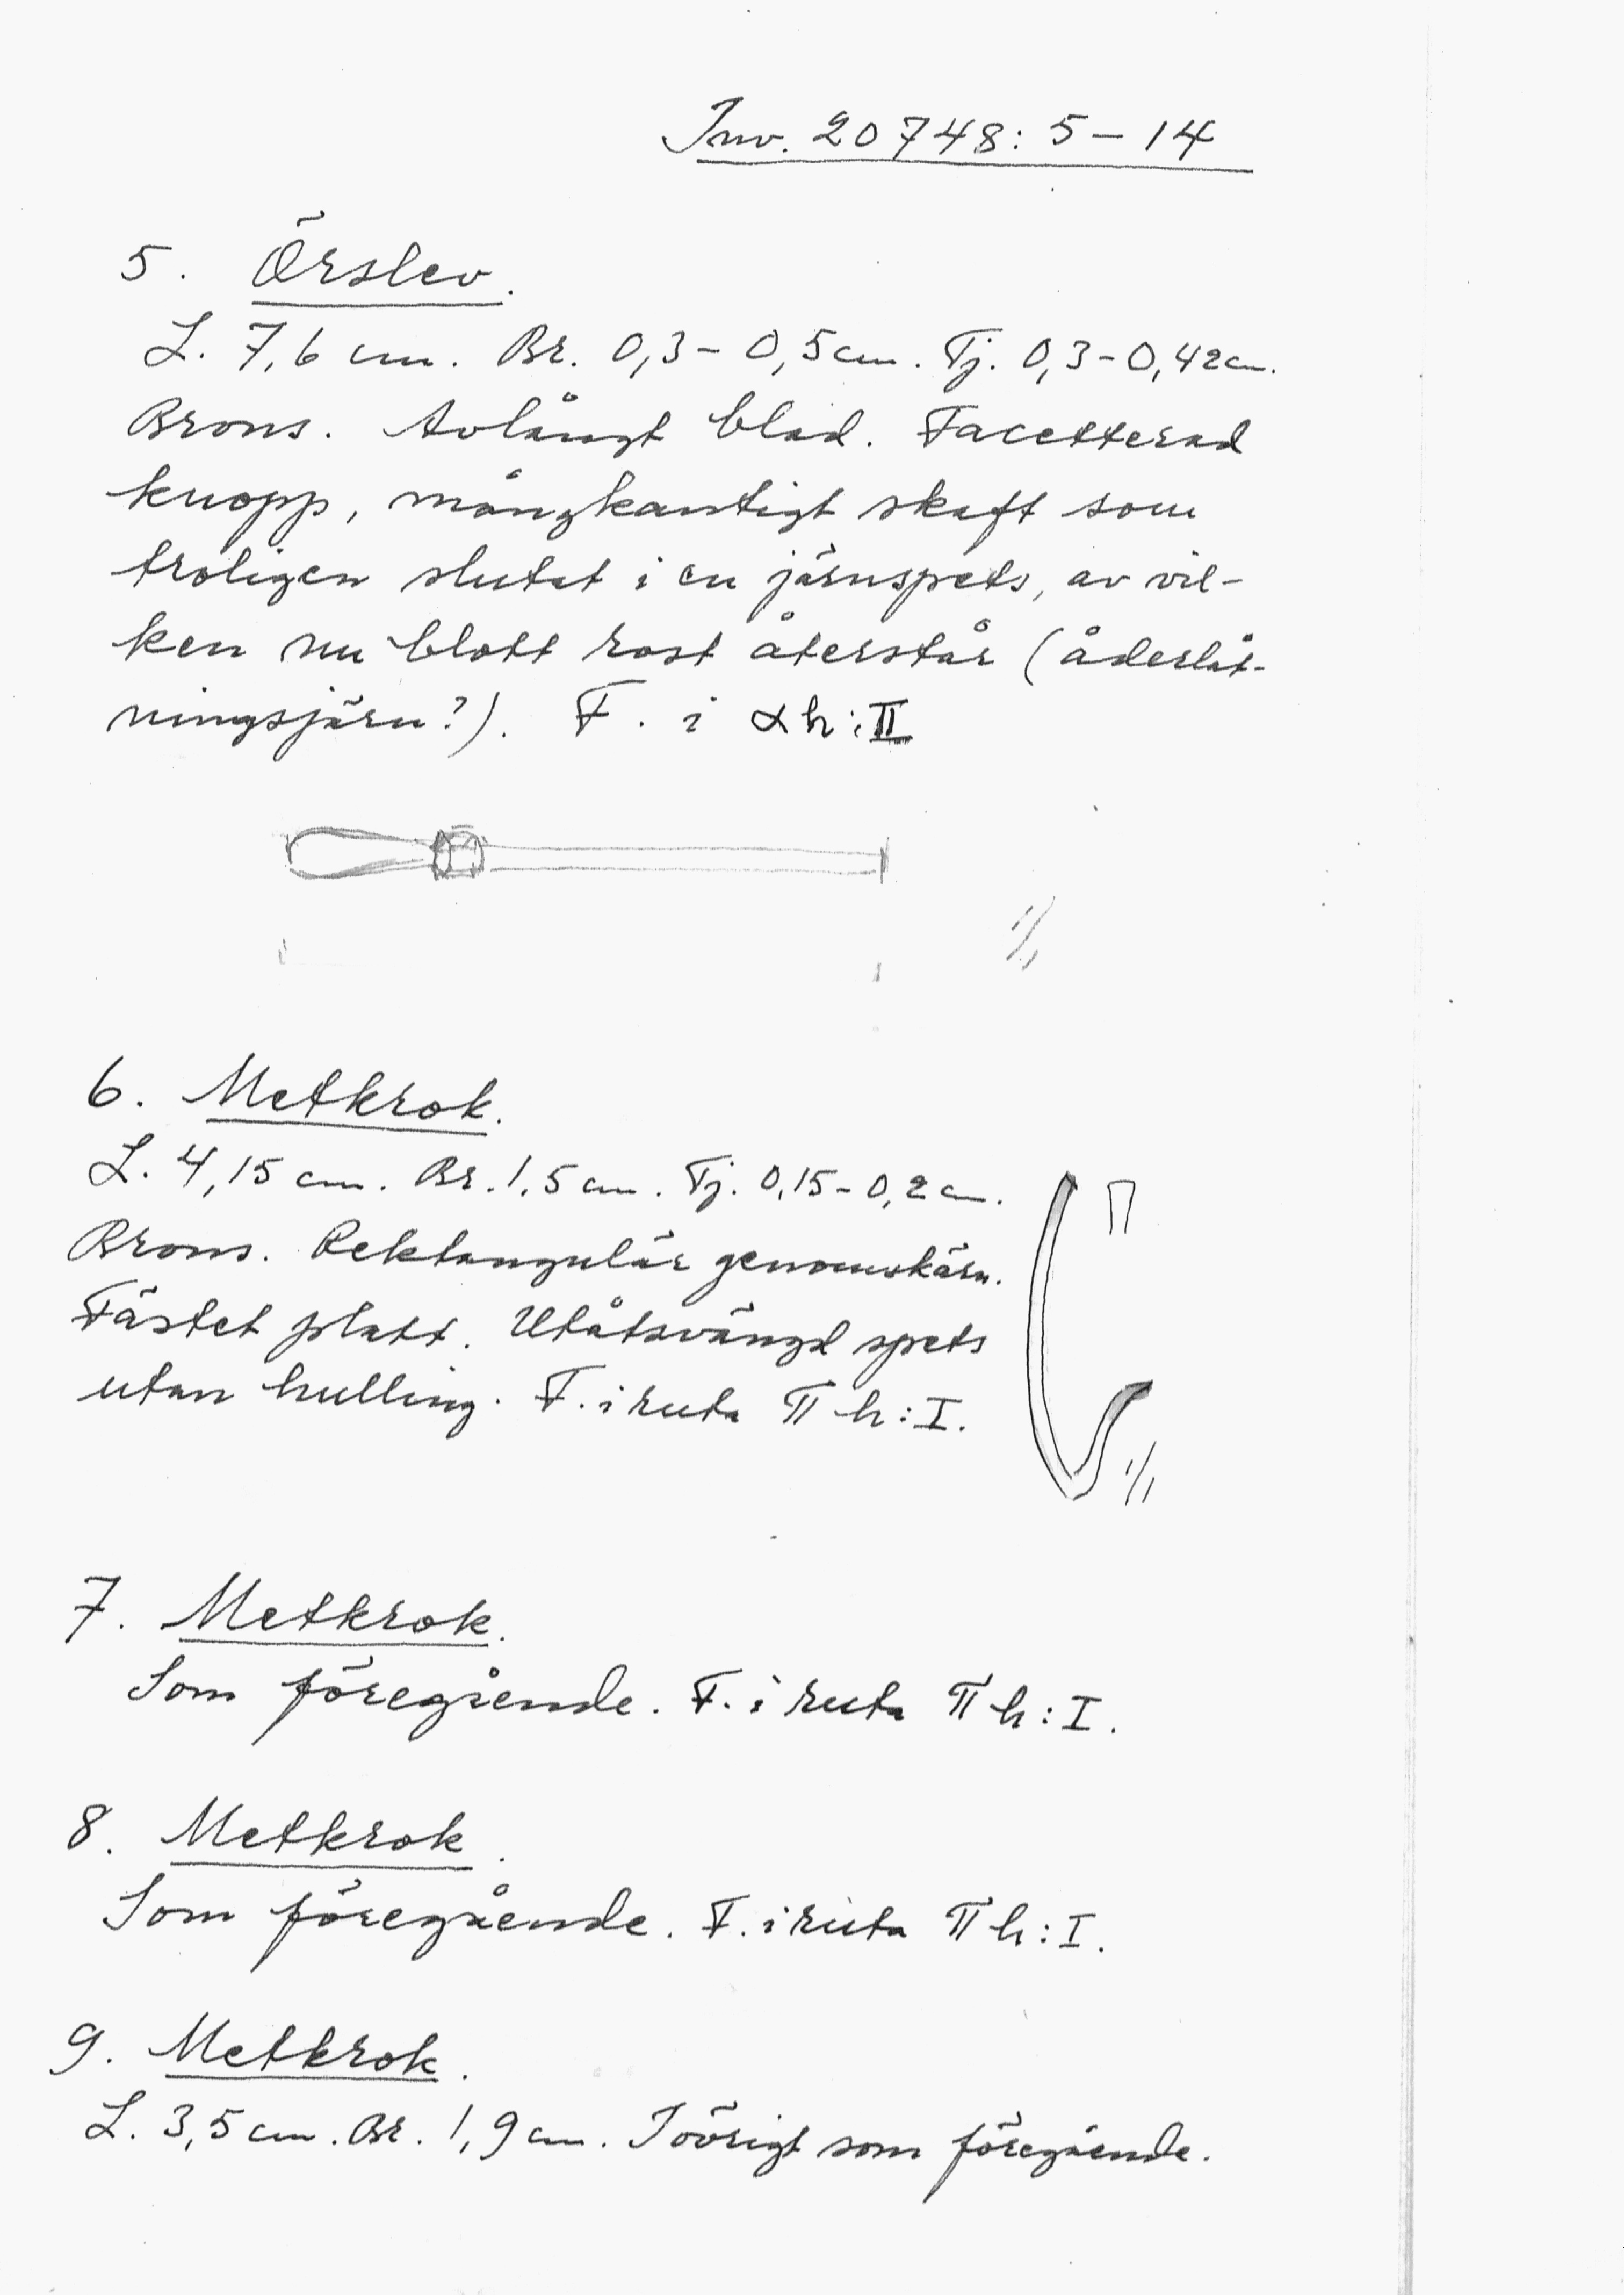 Inv. 20748: 5-14
5. Örslev.
L. 7,6 cm. Br. 0,3-0,5 cm. Tj. 0,3-0,42 cm.
Brons. Avlångt blad. Facetterad
knopp, mångkantigt skaft som
troligen slutat i en järnspets, av vil-
ken nu blott rost återstår (åderlåt-
ningsjärn?). F. i αh:II
1/1
6. Metkrok.
L. 4,15 cm. Br. 1,5 cm. Tj. 0,15-0,2 cm.
Brons. Rektangulär genomskärn.
Fästet platt. Utåtsvängd spets
utan hulling. F. i ruta π h: I.
1/1
7. Metkrok.
Som föregående. F. i ruta π h: I.
8. Metkrok.
Som föregående. F. i ruta π h: I.
9. Metkrok.
L. 3,5 cm. Br. 1,9 cm. I övrigt som föregående.